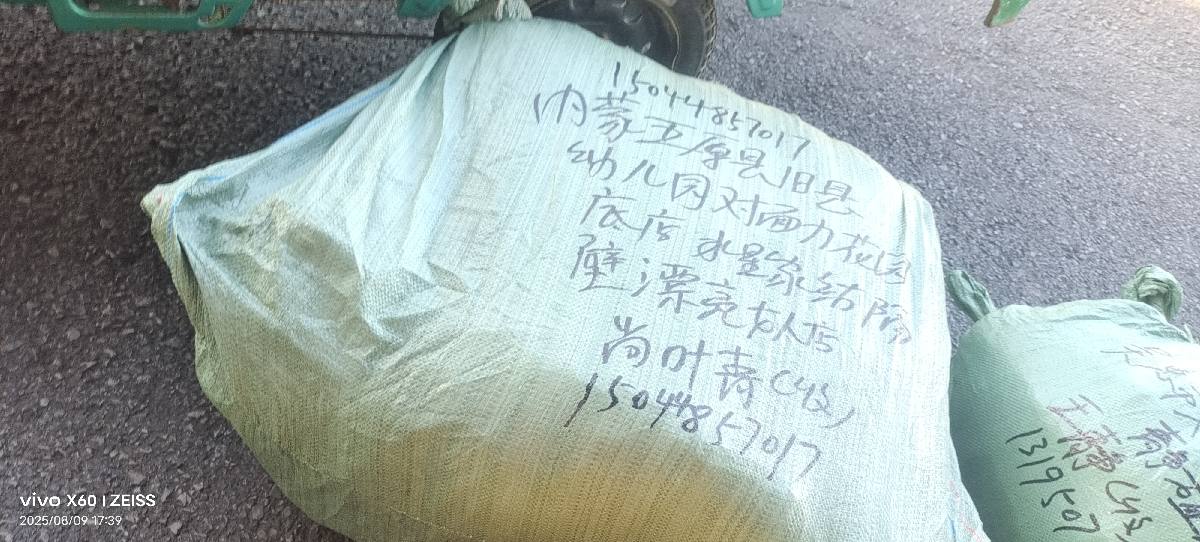 15044857017
内蒙五原县旧县
幼儿园对面力花园
底店 水星家纺隔
壁漂亮女人店
尚叶青(收)
15044857017
王静(收)
1319507
vivo X60 | ZEISS
2025/08/09 17:39